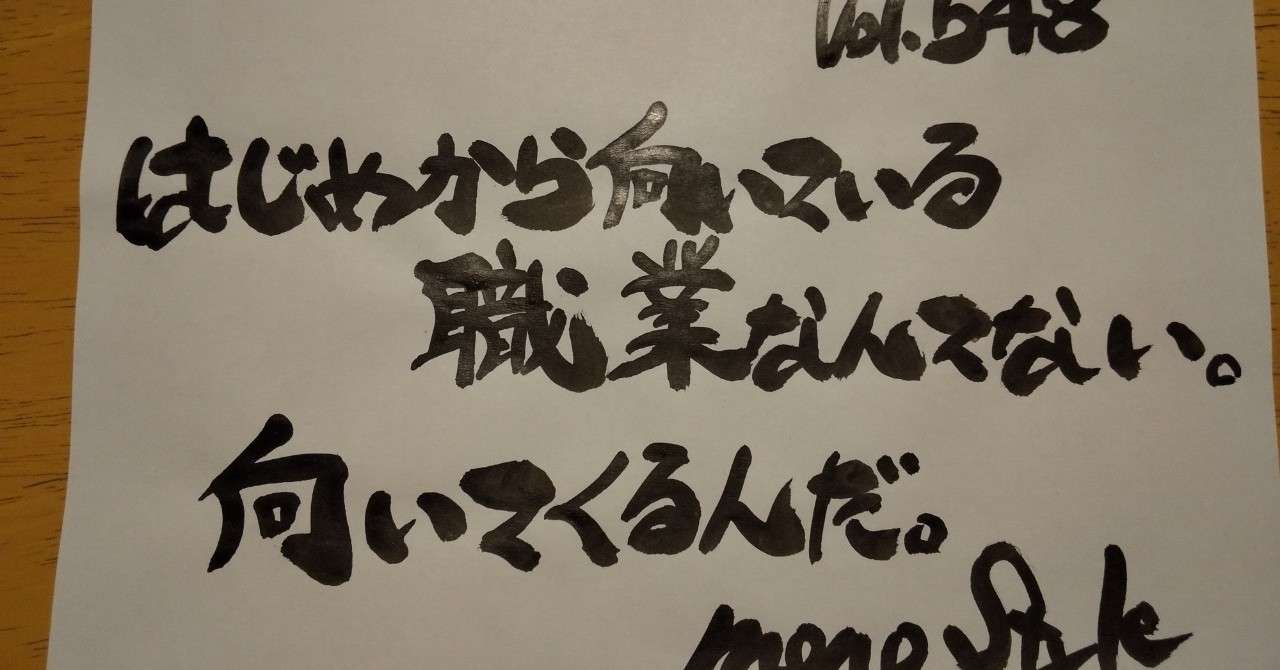 Vol.548
はじめから向いている
職業なんてない。
向いてくるんだ。
mono Style